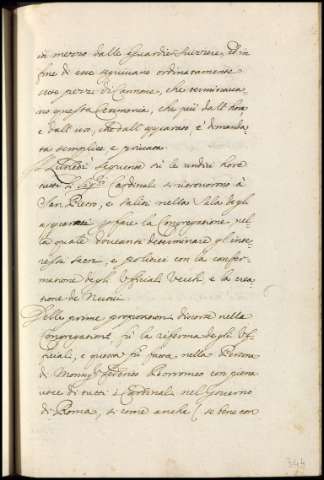 in mezzo dalle Guardie Suizzere, et in
fine di esse seguivano ordinatamente
otto pezzi di Cannone, che terminava
no questa Cerimonia, che più dall' hora
e dall' uso, che dall' apparato, è domanda
ta semplice e privata
Lunedì seguente sù le undici hore
tutti i Sig.ri Cardinali si ritrovorono à
San Pietro, e saliti nella Sala degli
apparati p. fare la Congregatione, nel
la quale doveano determinare gl' inte
ressi Sacri, e politici con la confer
matione degli Ufficiali Vecchi, e la crea
tione de Nuovi.
Delle prime propositioni discorse nella
Congregatione fù la riforma degli Uf
ficiali, e questa fù fatta nella Persona
di Monsig.r Federico Borromeo con piena
voce di tutti i Cardinali nel Governo
di Roma, si come anche ( se bene con
344